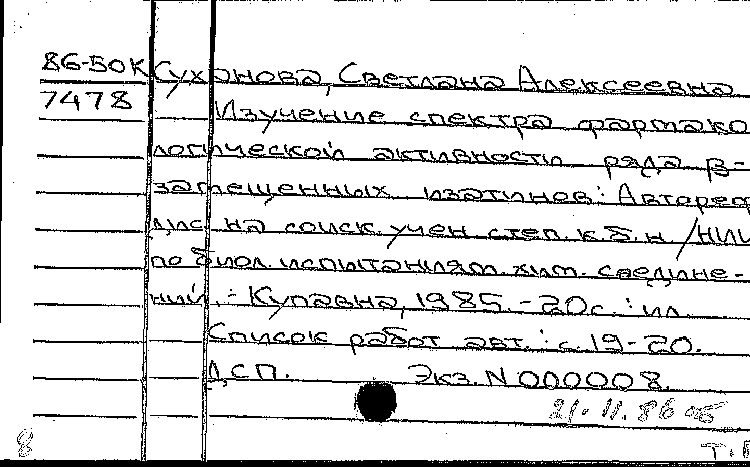 86-50К Суханова, Светлана Алексеевна
7478 Изучение спектра фармако
логической активности ряда β-
замещенных изатинов: Автореф
дис на соиск. учен степ. к.б.н /НИИ
по биол. испытаниям хим. соедине-
ний. - Купавна, 1985. - 20 с. : ил.
Список работ авт. : с. 19-20.
ДСП. Экз. N 000008.
21.11.86
8